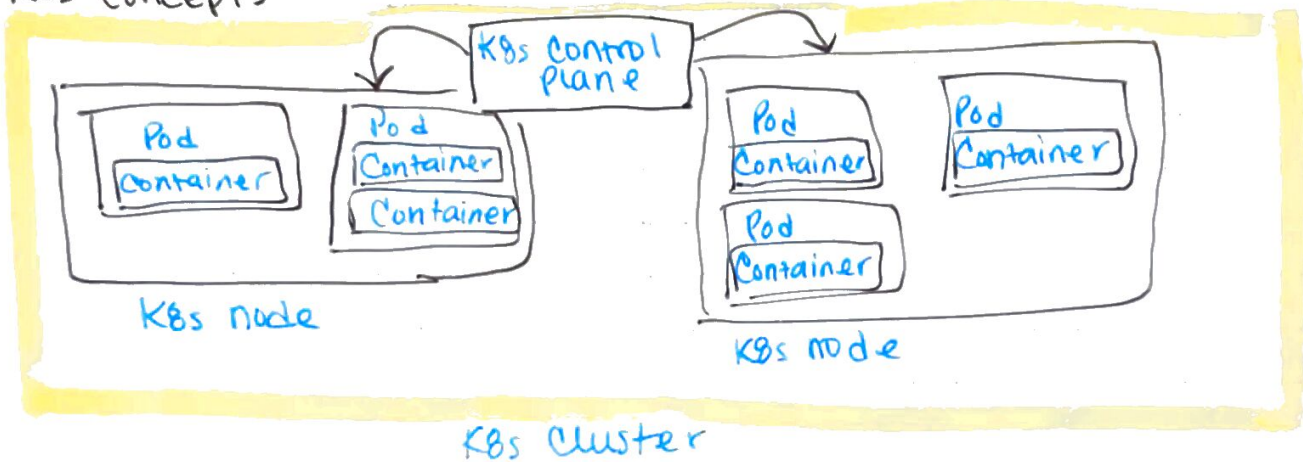 concepts
K8s control
plane
Pod
Container
Pod
Container
Container
K8s node
Pod
Container
Pod
Container
Pod
Container
K8s node
K8s Cluster